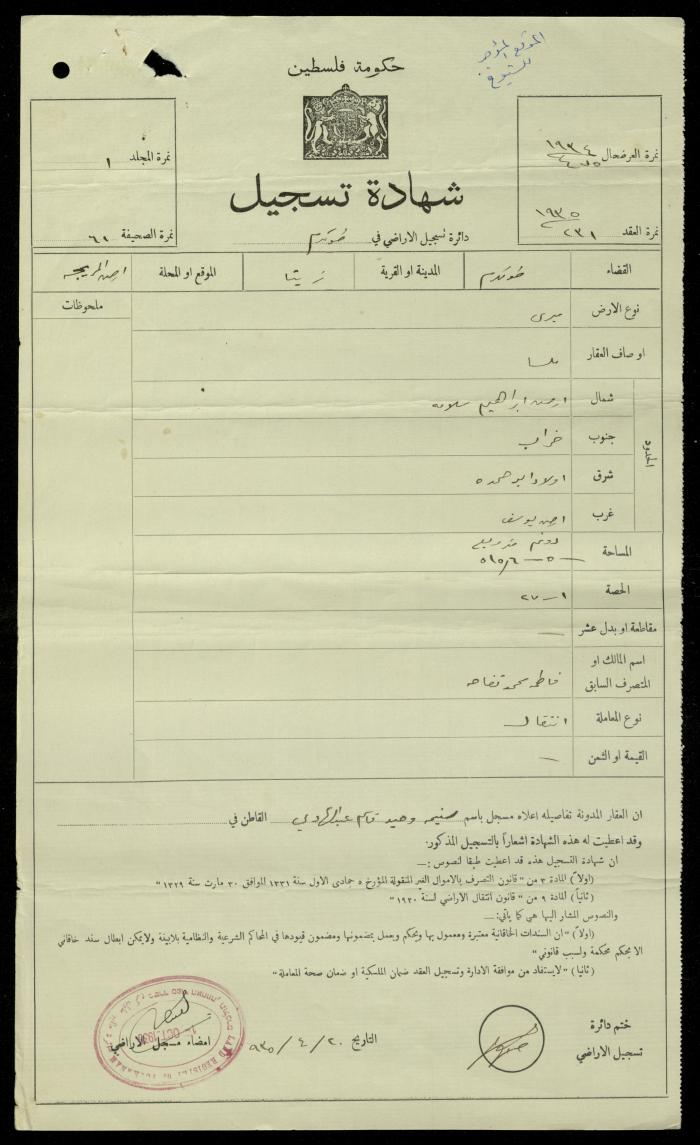 حكومة فلسطين
الموقع المؤجر
نمرة العرضحال ١٩٣٤
نمرة العقد ١٩٣٥ / ٢٣١
نمرة المجلد ١
نمرة الصحيفة ٦١
شهادة تسجيل
دائرة تسجيل الاراضي في طولكرم
القضاء طولكرم المدينة او القرية زيتا الموقع او المحلة
ملحوظات
نوع الارض ميري
اوصاف العقار ملسا
الحدود
شمال ارض ابراهيم سلامه
جنوب خراب
شرق اولاد ابو حمده
غرب ارض يوسف
المساحة دونم
الحصة ١ — ٢٧
مقاطعة او بدل عشر —
اسم المالك او
المتصرف السابق فاطمه محمد تفاحه
نوع المعاملة انتقال
القيمة او الثمن —
ان العقار المدونة تفاصيله اعلاه مسجل باسم وحيد قاسم عبد الهادي القاطن في
وقد اعطيت له هذه الشهادة اشعاراً بالتسجيل المذكور:
ان شهادة التسجيل هذه قد اعطيت طبقا لنصوص:—
(اولاً) المادة ٣ من "قانون التصرف بالاموال الغير المنقولة المؤرخ ٥ جمادى الاول سنة ١٣٣١ الموافق ٣٠ مارت سنة ١٣٢٩"
(ثانياً) المادة ٩ من "قانون انتقال الاراضي لسنة ١٩٢٠"
والنصوص المشار اليها هي كما يأتي:—
(اولاً) "ان السندات الخاقانية معتبرة ومعمول بها ويحكم ويعمل بمضمونها ومضمون قيودها في المحاكم الشرعية والنظامية بلا بينة ولا يمكن ابطال سند خاقاني
الا بحكم محكمة ولسبب قانوني"
(ثانيا) "لا يستفاد من موافقة الادارة وتسجيل العقد ضمان الملكية او ضمان صحة المعاملة"
ختم دائرة
تسجيل الاراضي
التاريخ ٢٠ / ٤ / ٩٣٥
امضاء مسجل الاراضي
LAND REGISTRY
OCT 193